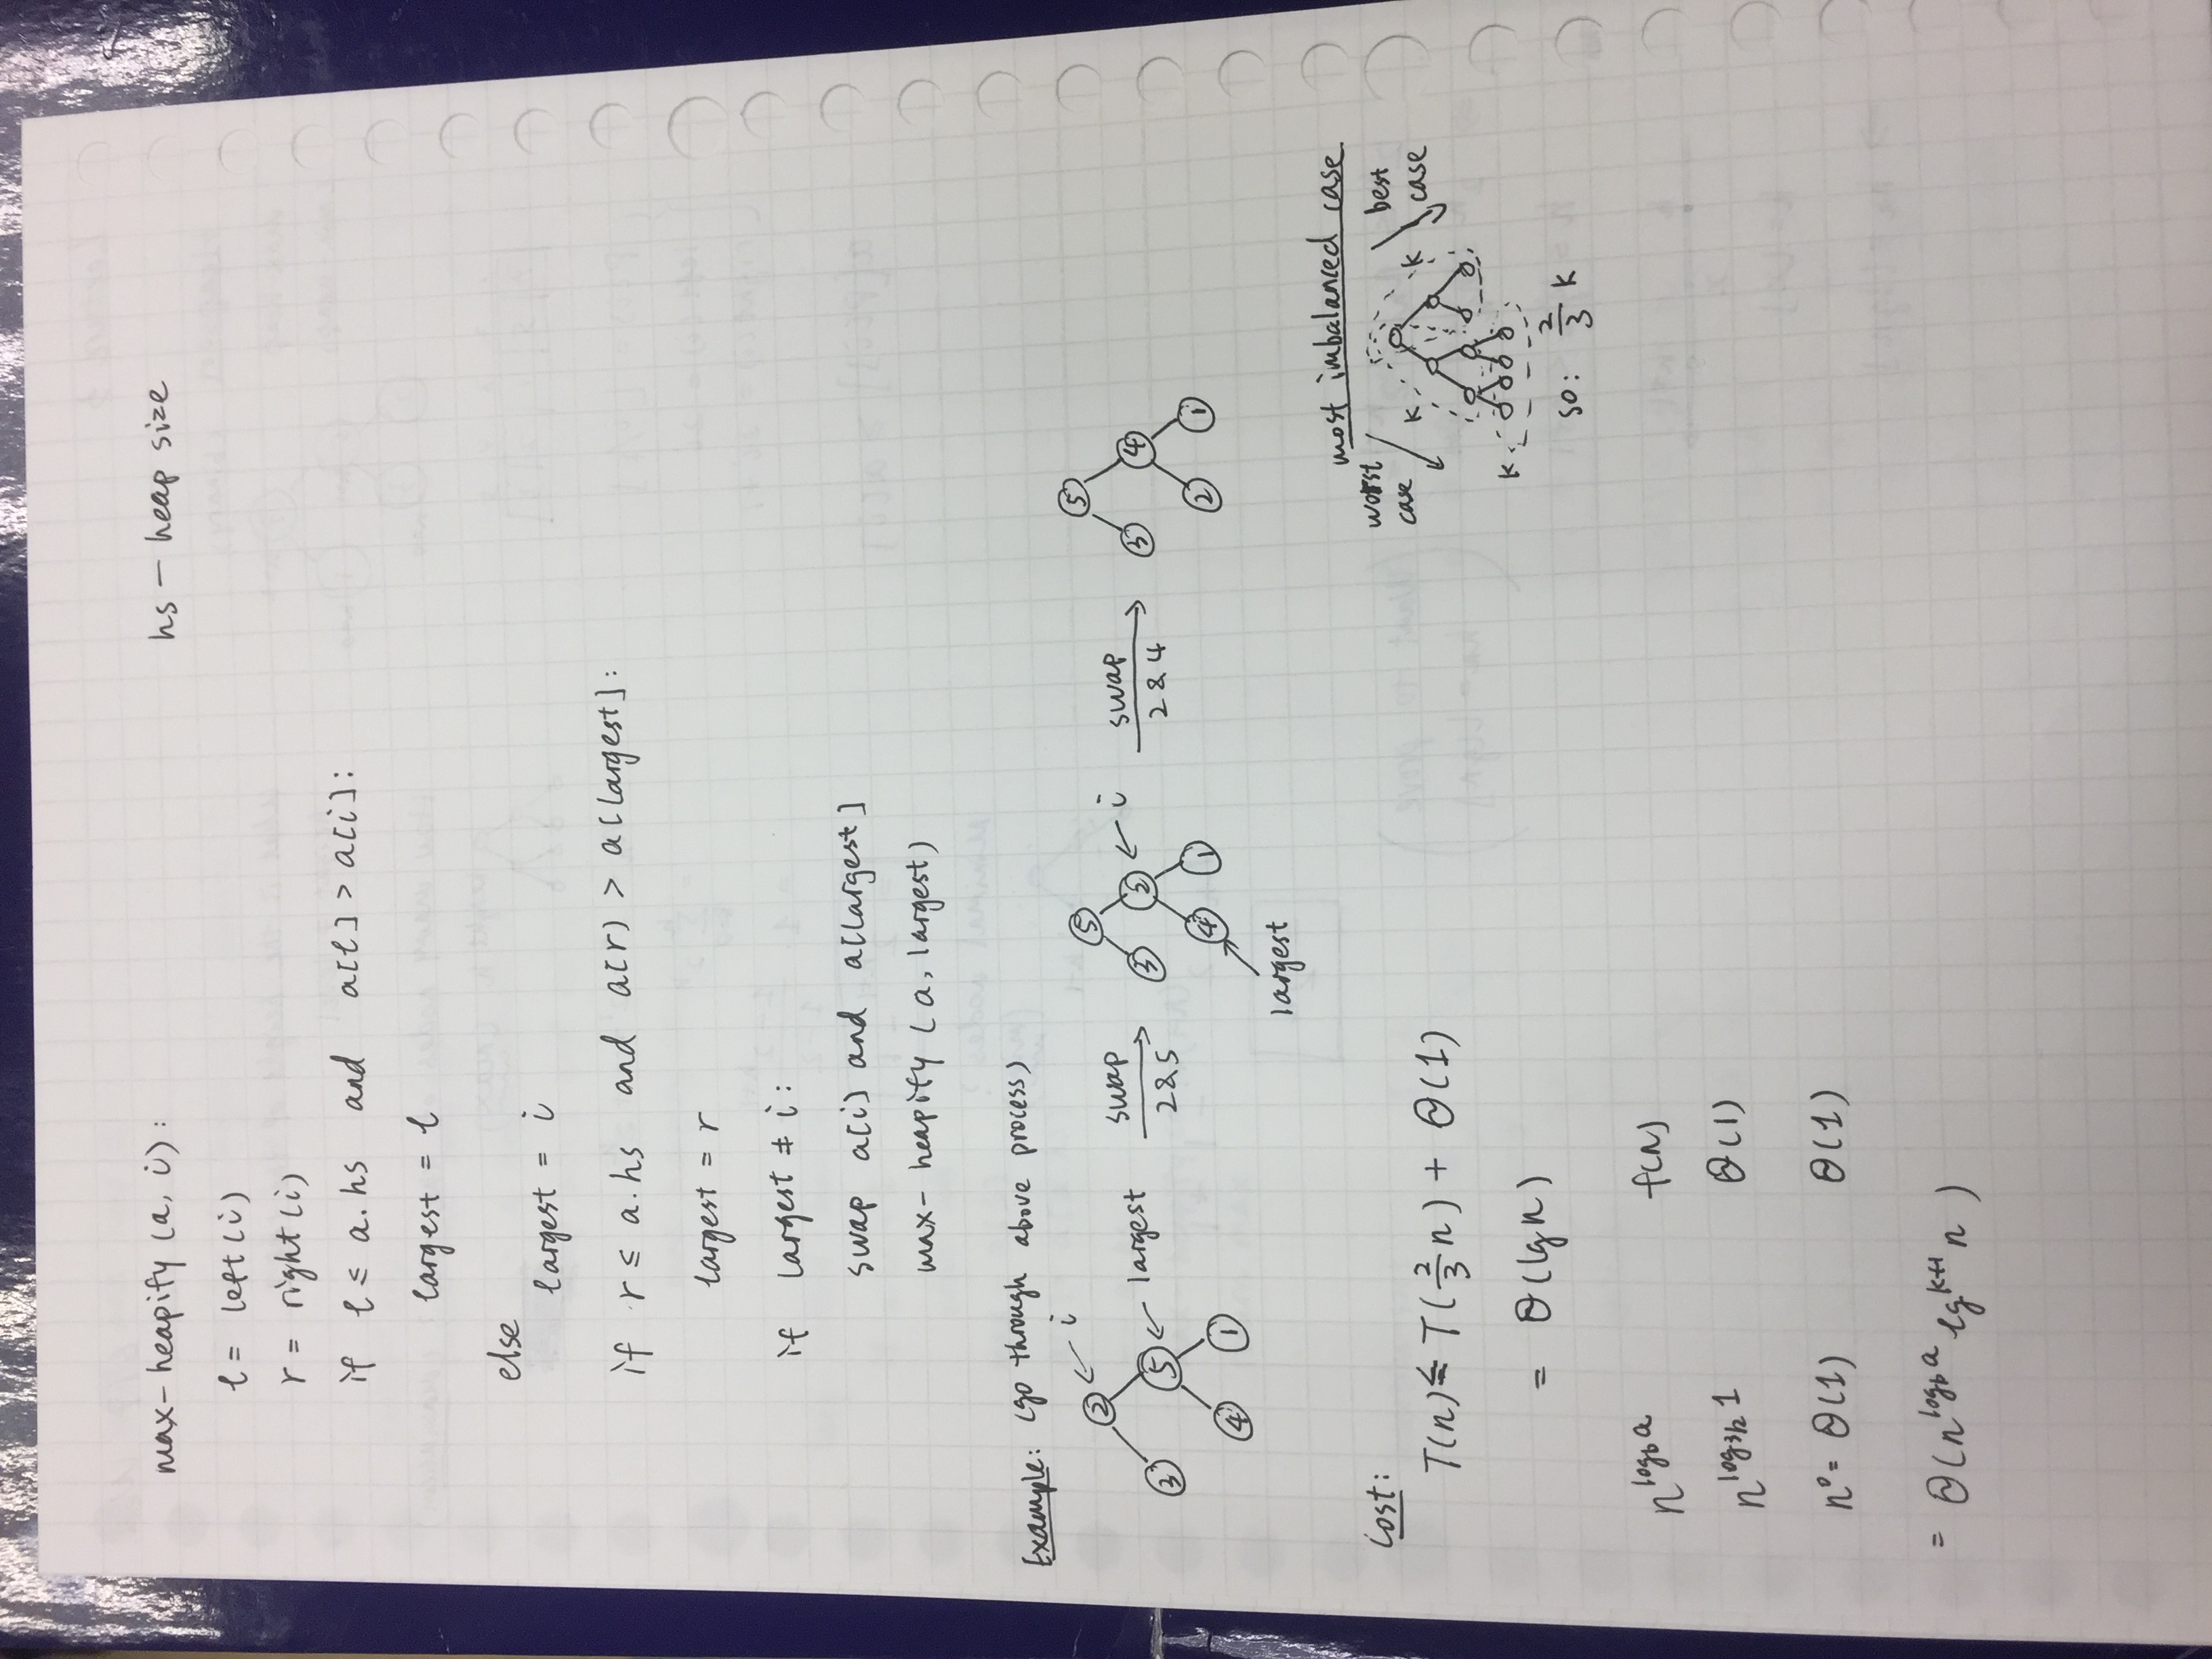 max-heapify (a, i):
hs - heap size
l = left(i)
r = right(i)
if l ≤ a.hs and a[l] > a[i]:
largest = l
else
largest = i
if r ≤ a.hs and a[r) > a[largest]:
largest = r
if largest ≠ i:
swap a[i] and a[largest]
max-heapify (a, largest)
Example: (go through above process)
2 ← i
3 5 ← largest
4 1
swap
2&5
5
3 2 ← i
4 1
largest
swap
2&4
5
3 4
2 1
most imbalanced case
worst case
best case
K K
K
so: 2/3 K
Cost:
T(n) ≤ T(2/3 n) + Θ(1)
= Θ(lg n)
n^{log_b a} f(n)
n^{log_{3/2} 1} Θ(1)
n^0 = Θ(1) Θ(1)
= Θ(n^{log_b a} lg^{k+1} n)